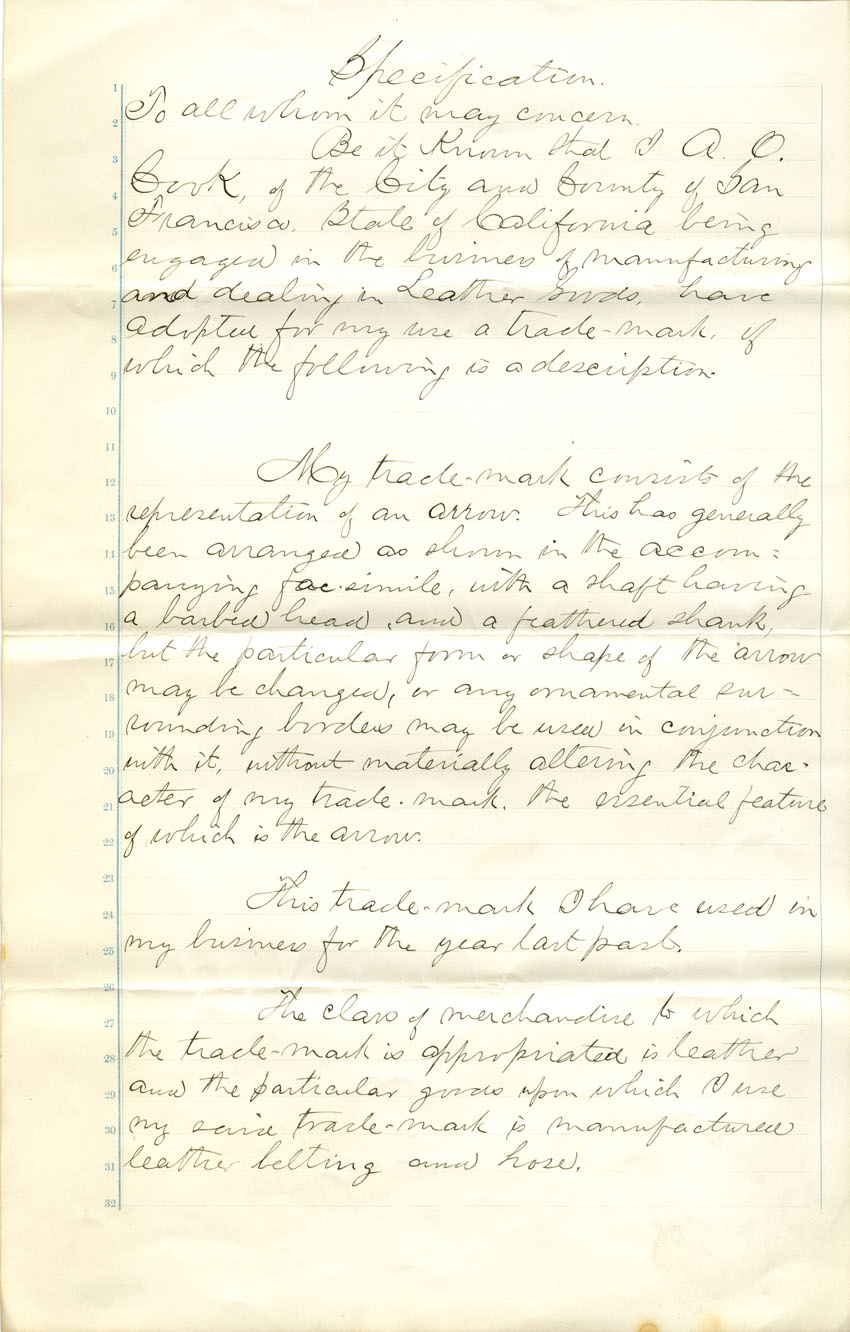 Specification.
1
To all whom it may concern.
2
Be it Known that I A. O.
3
Cook, of the City and County of San
4
Francisco, State of California being
5
engaged in the business of manufacturing
6
and dealing in Leather Goods, have
7
adopted for my use a trade-mark, of
8
which the following is a description.
9
10
11
My trade-mark consists of the
12
representation of an arrow. This has generally
13
been arranged as shown in the accom=
14
panying fac-simile, with a shaft having
15
a barbed head, and a feathered shank,
16
but the particular form or shape of the arrow
17
may be changed, or any ornamental sur=
18
rounding borders may be used in conjunction
19
with it, without materially altering the char-
20
acter of my trade-mark, the essential feature
21
of which is the arrow.
22
23
This trade-mark I have used in
24
my business for the year last past.
25
26
The class of merchandise to which
27
the trade-mark is appropriated is leather
28
and the particular goods upon which I use
29
my said trade-mark is manufactured
30
leather belting and hose.
31
32